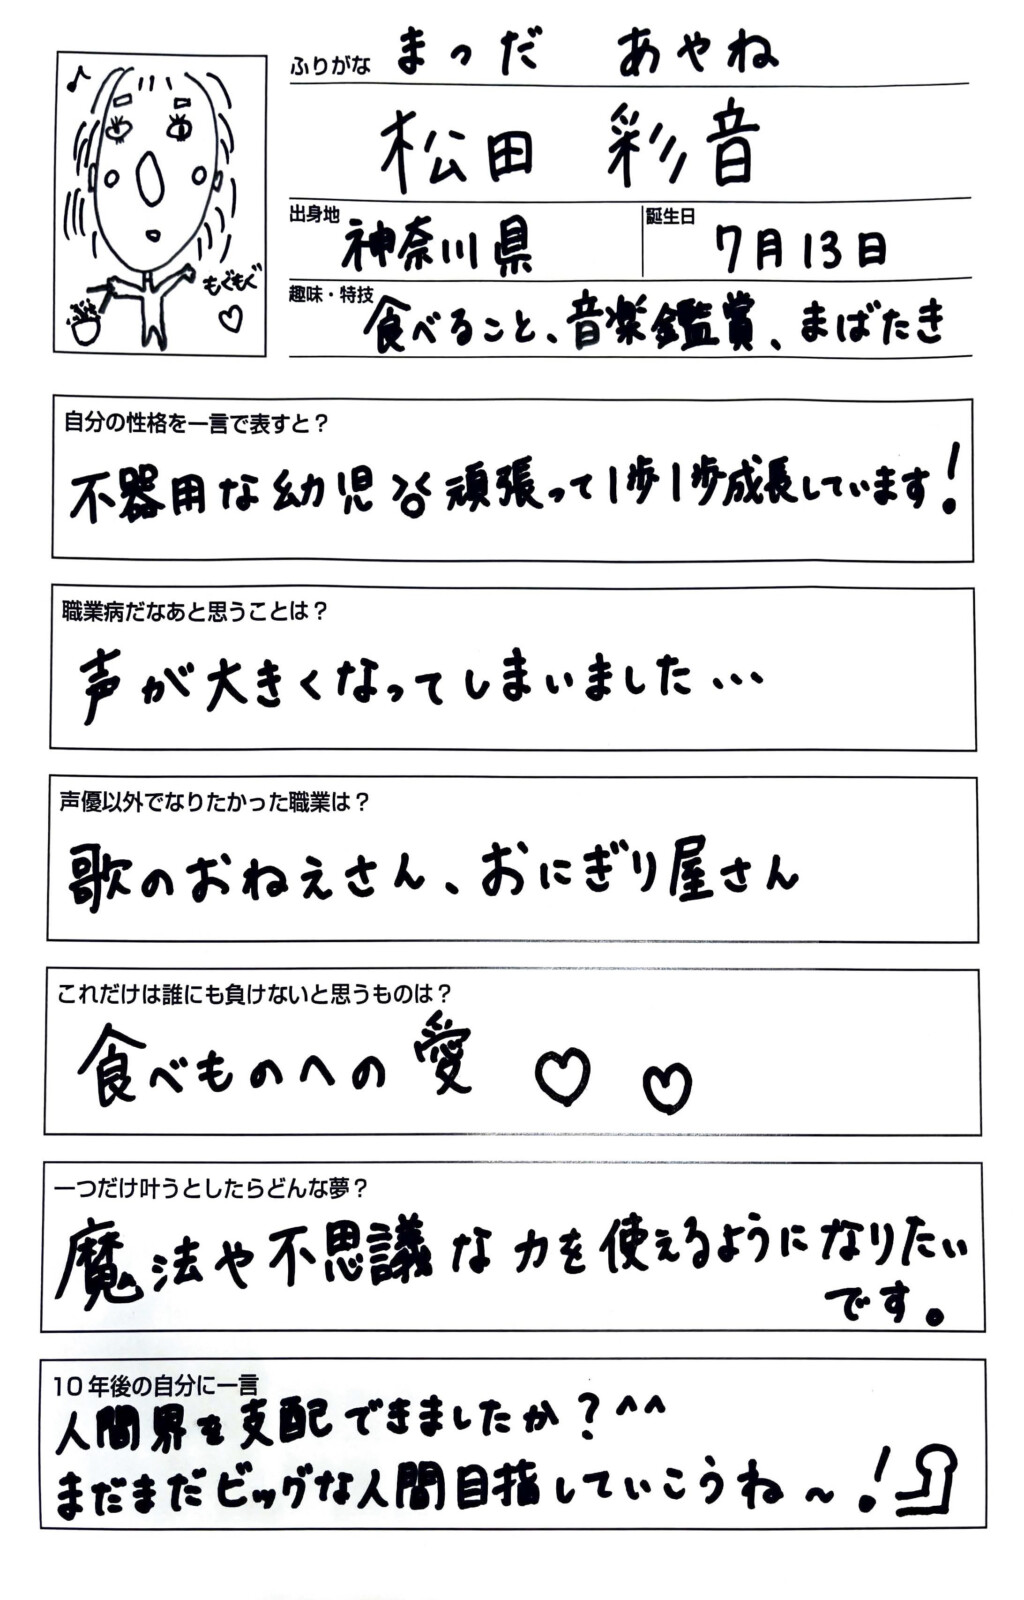 ふりがな まつだ あやね
松田 彩音
出身地 神奈川県 誕生日 7月13日
趣味・特技 食べること、音楽鑑賞、まばたき
もぐもぐ♡
自分の性格を一言で表すと？
不器用な幼児 頑張って1歩1歩成長しています!
職業病だなあと思うことは？
声が大きくなってしまいました…
声優以外でなりたかった職業は？
歌のおねえさん、おにぎり屋さん
これだけは誰にも負けないと思うものは？
食べものへの愛 ♡ ♡
一つだけ叶うとしたらどんな夢？
魔法や不思議な力を使えるようになりたい
です。
10年後の自分に一言
人間界を支配できましたか？^^
まだまだビッグな人間目指していこうね~!